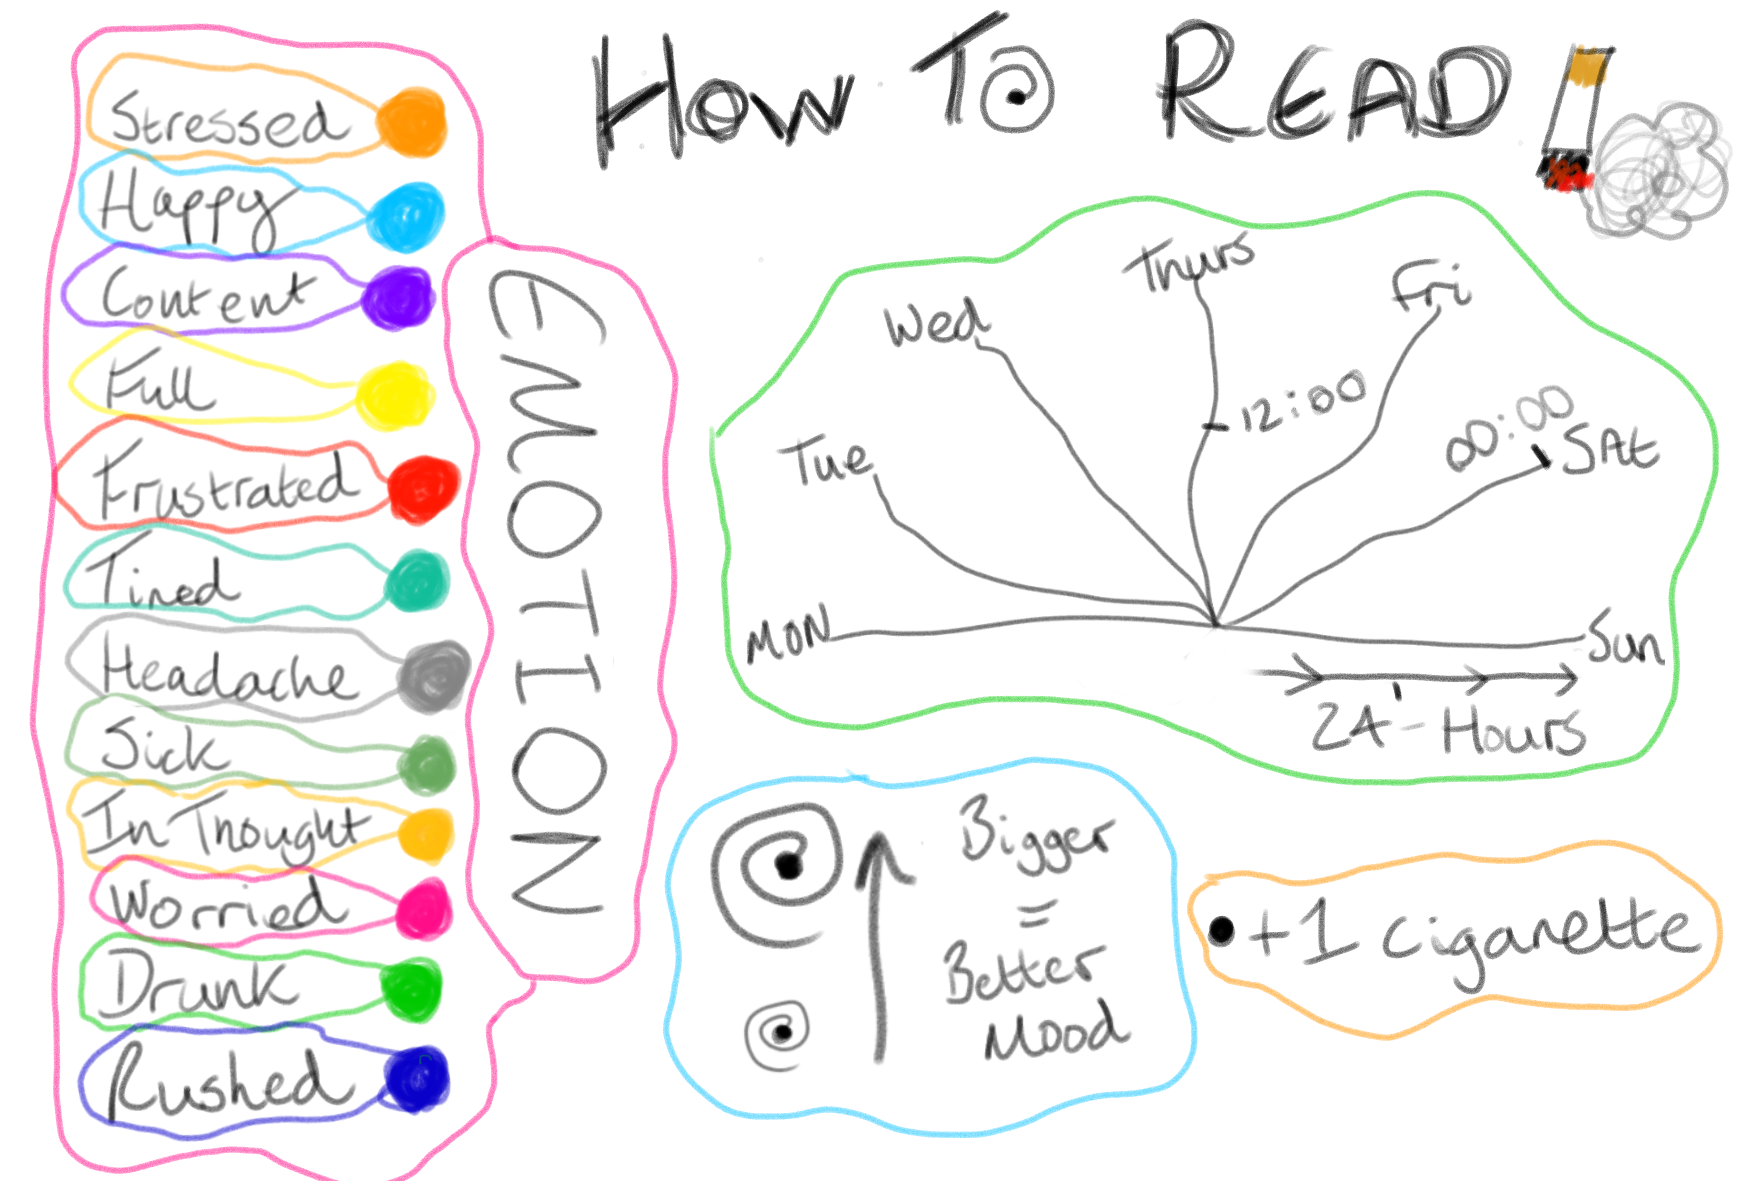 How To READ
Stressed
Happy
Content
Full
Frustrated
Tired
Headache
Sick
In Thought
Worried
Drunk
Rushed
EMOTION
Mon
Tue
Wed
Thurs
Fri
Sat
Sun
12:00
00:00
24-Hours
Bigger
=
Better
Mood
+1 cigarette